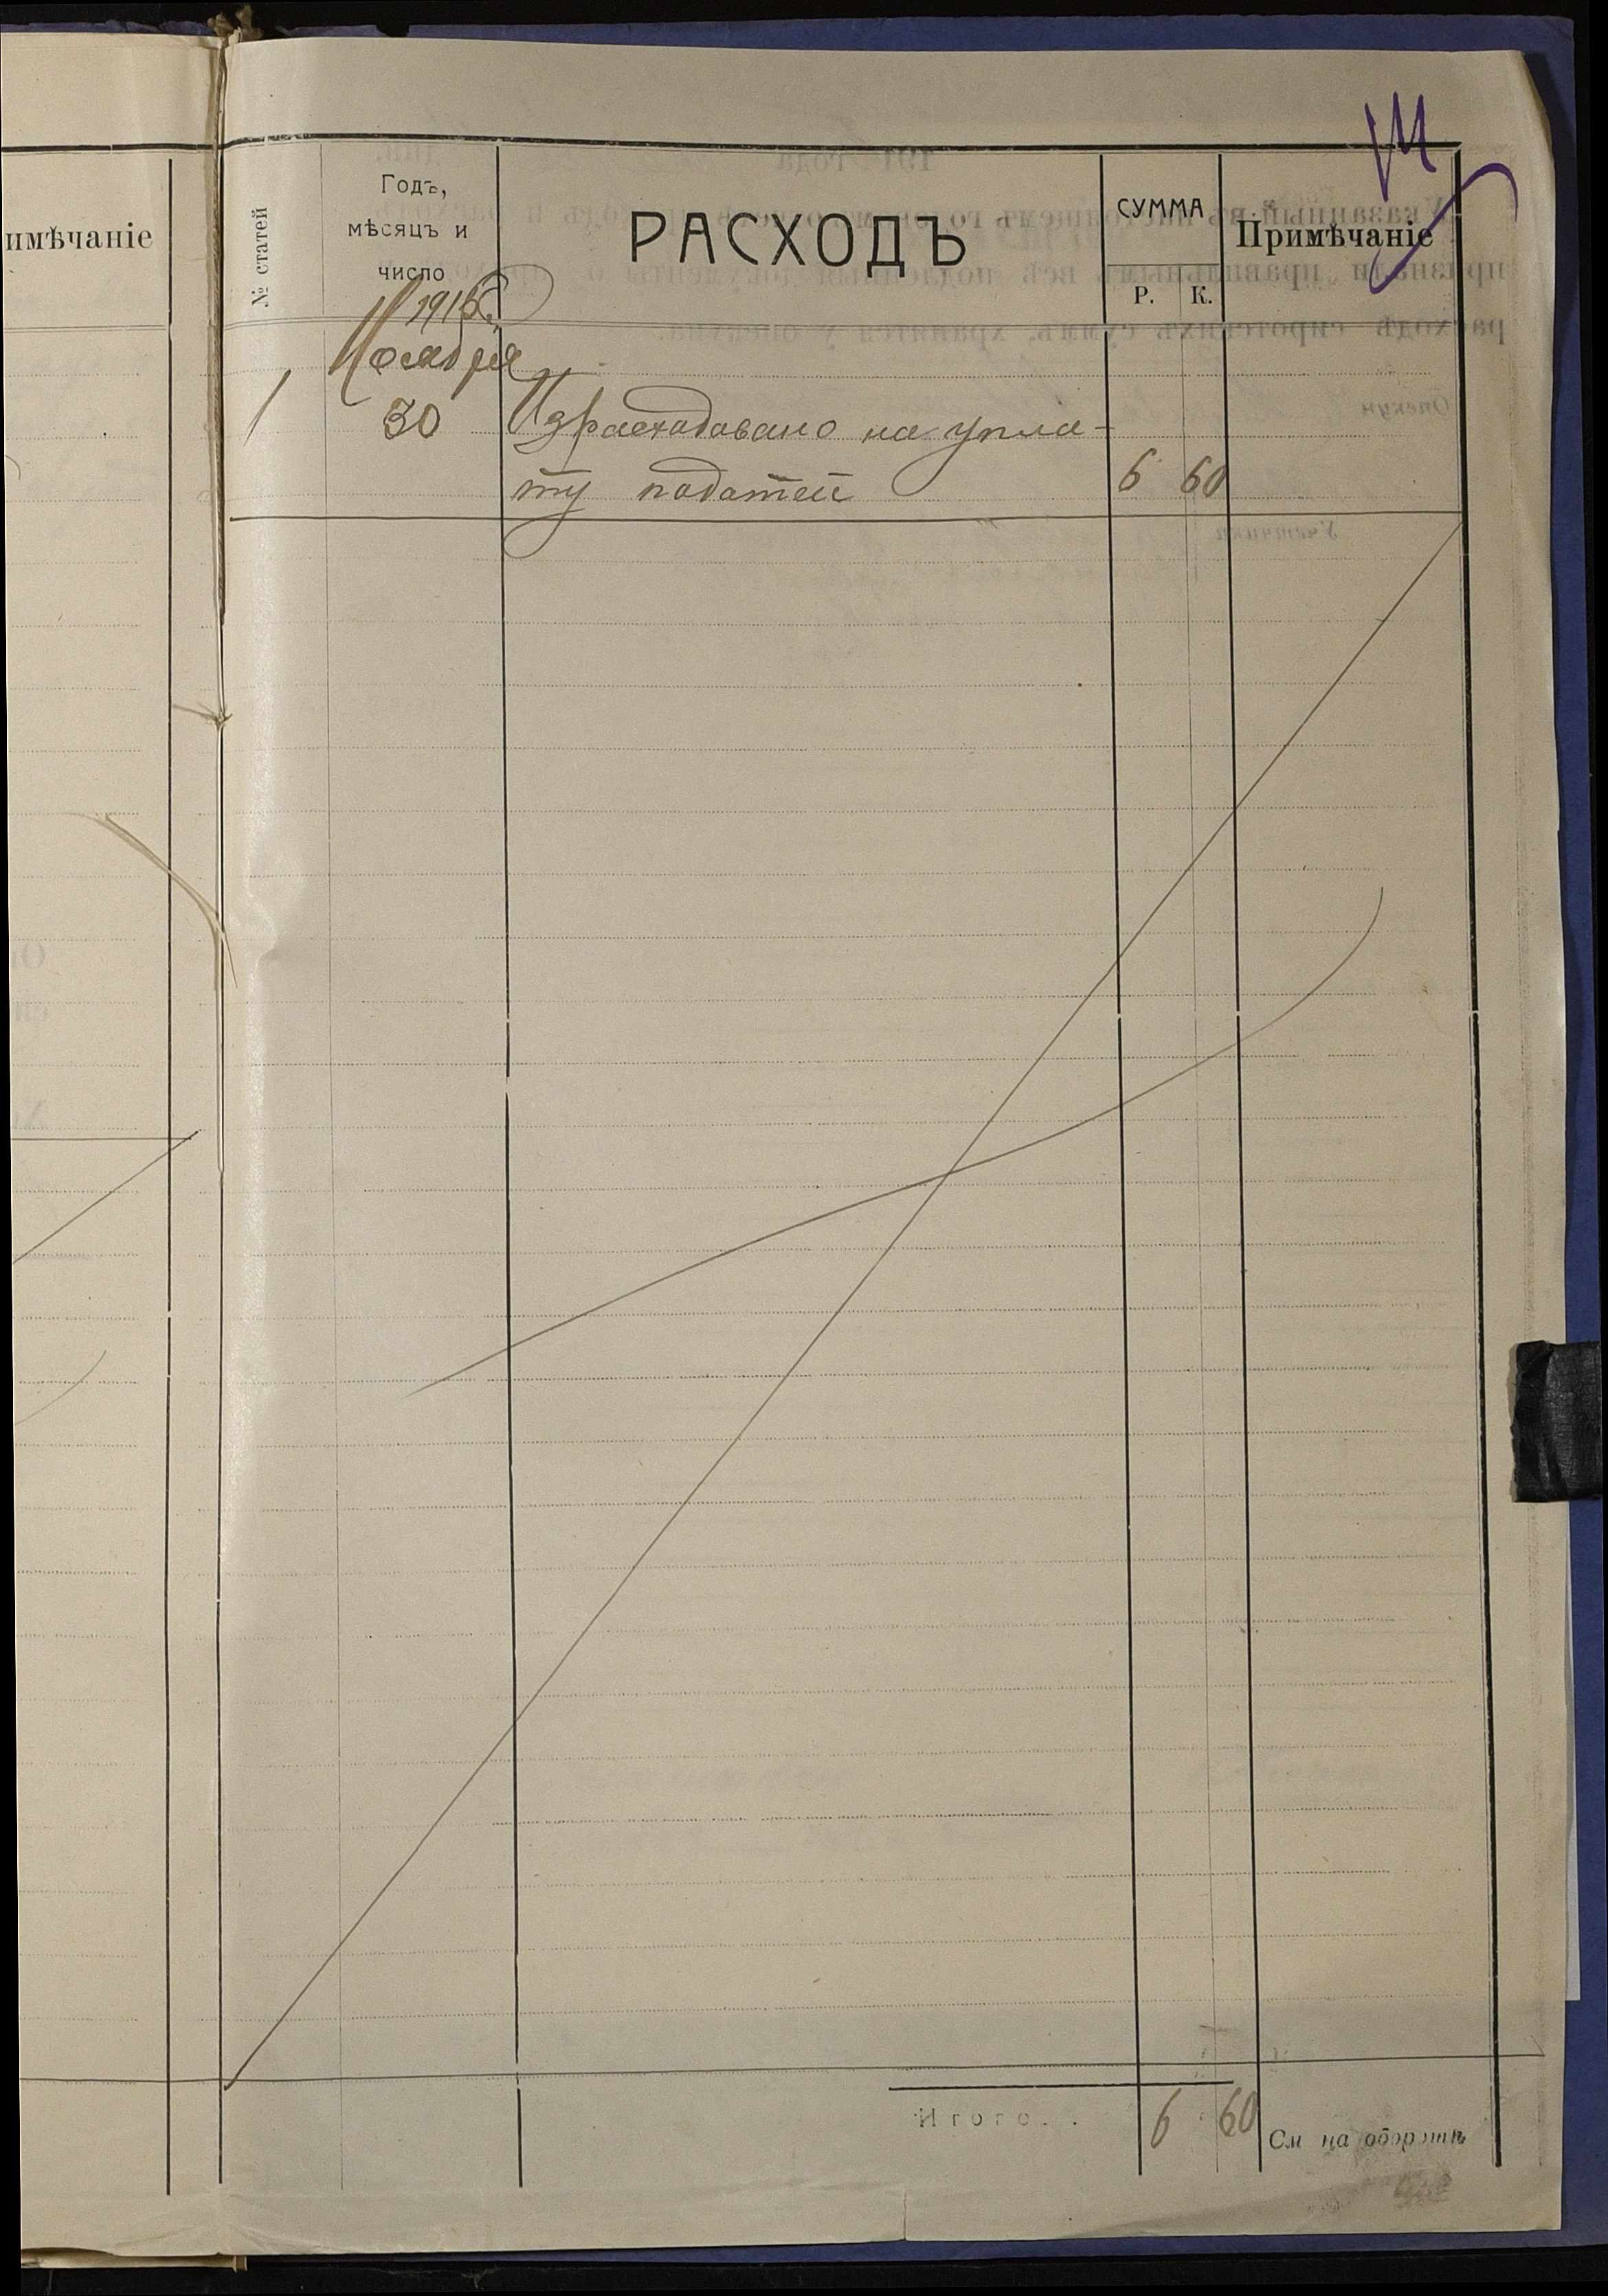 имѣчаніе
№ статей
Годъ,
мѣсяцъ и
число
РАСХОДЪ
СУММА
Р. К.
Примѣчаніе
Ноября
1 30 Израсходовано на упла-
ту податей 6 60
Итого . . 6 60
См на оборотѣ